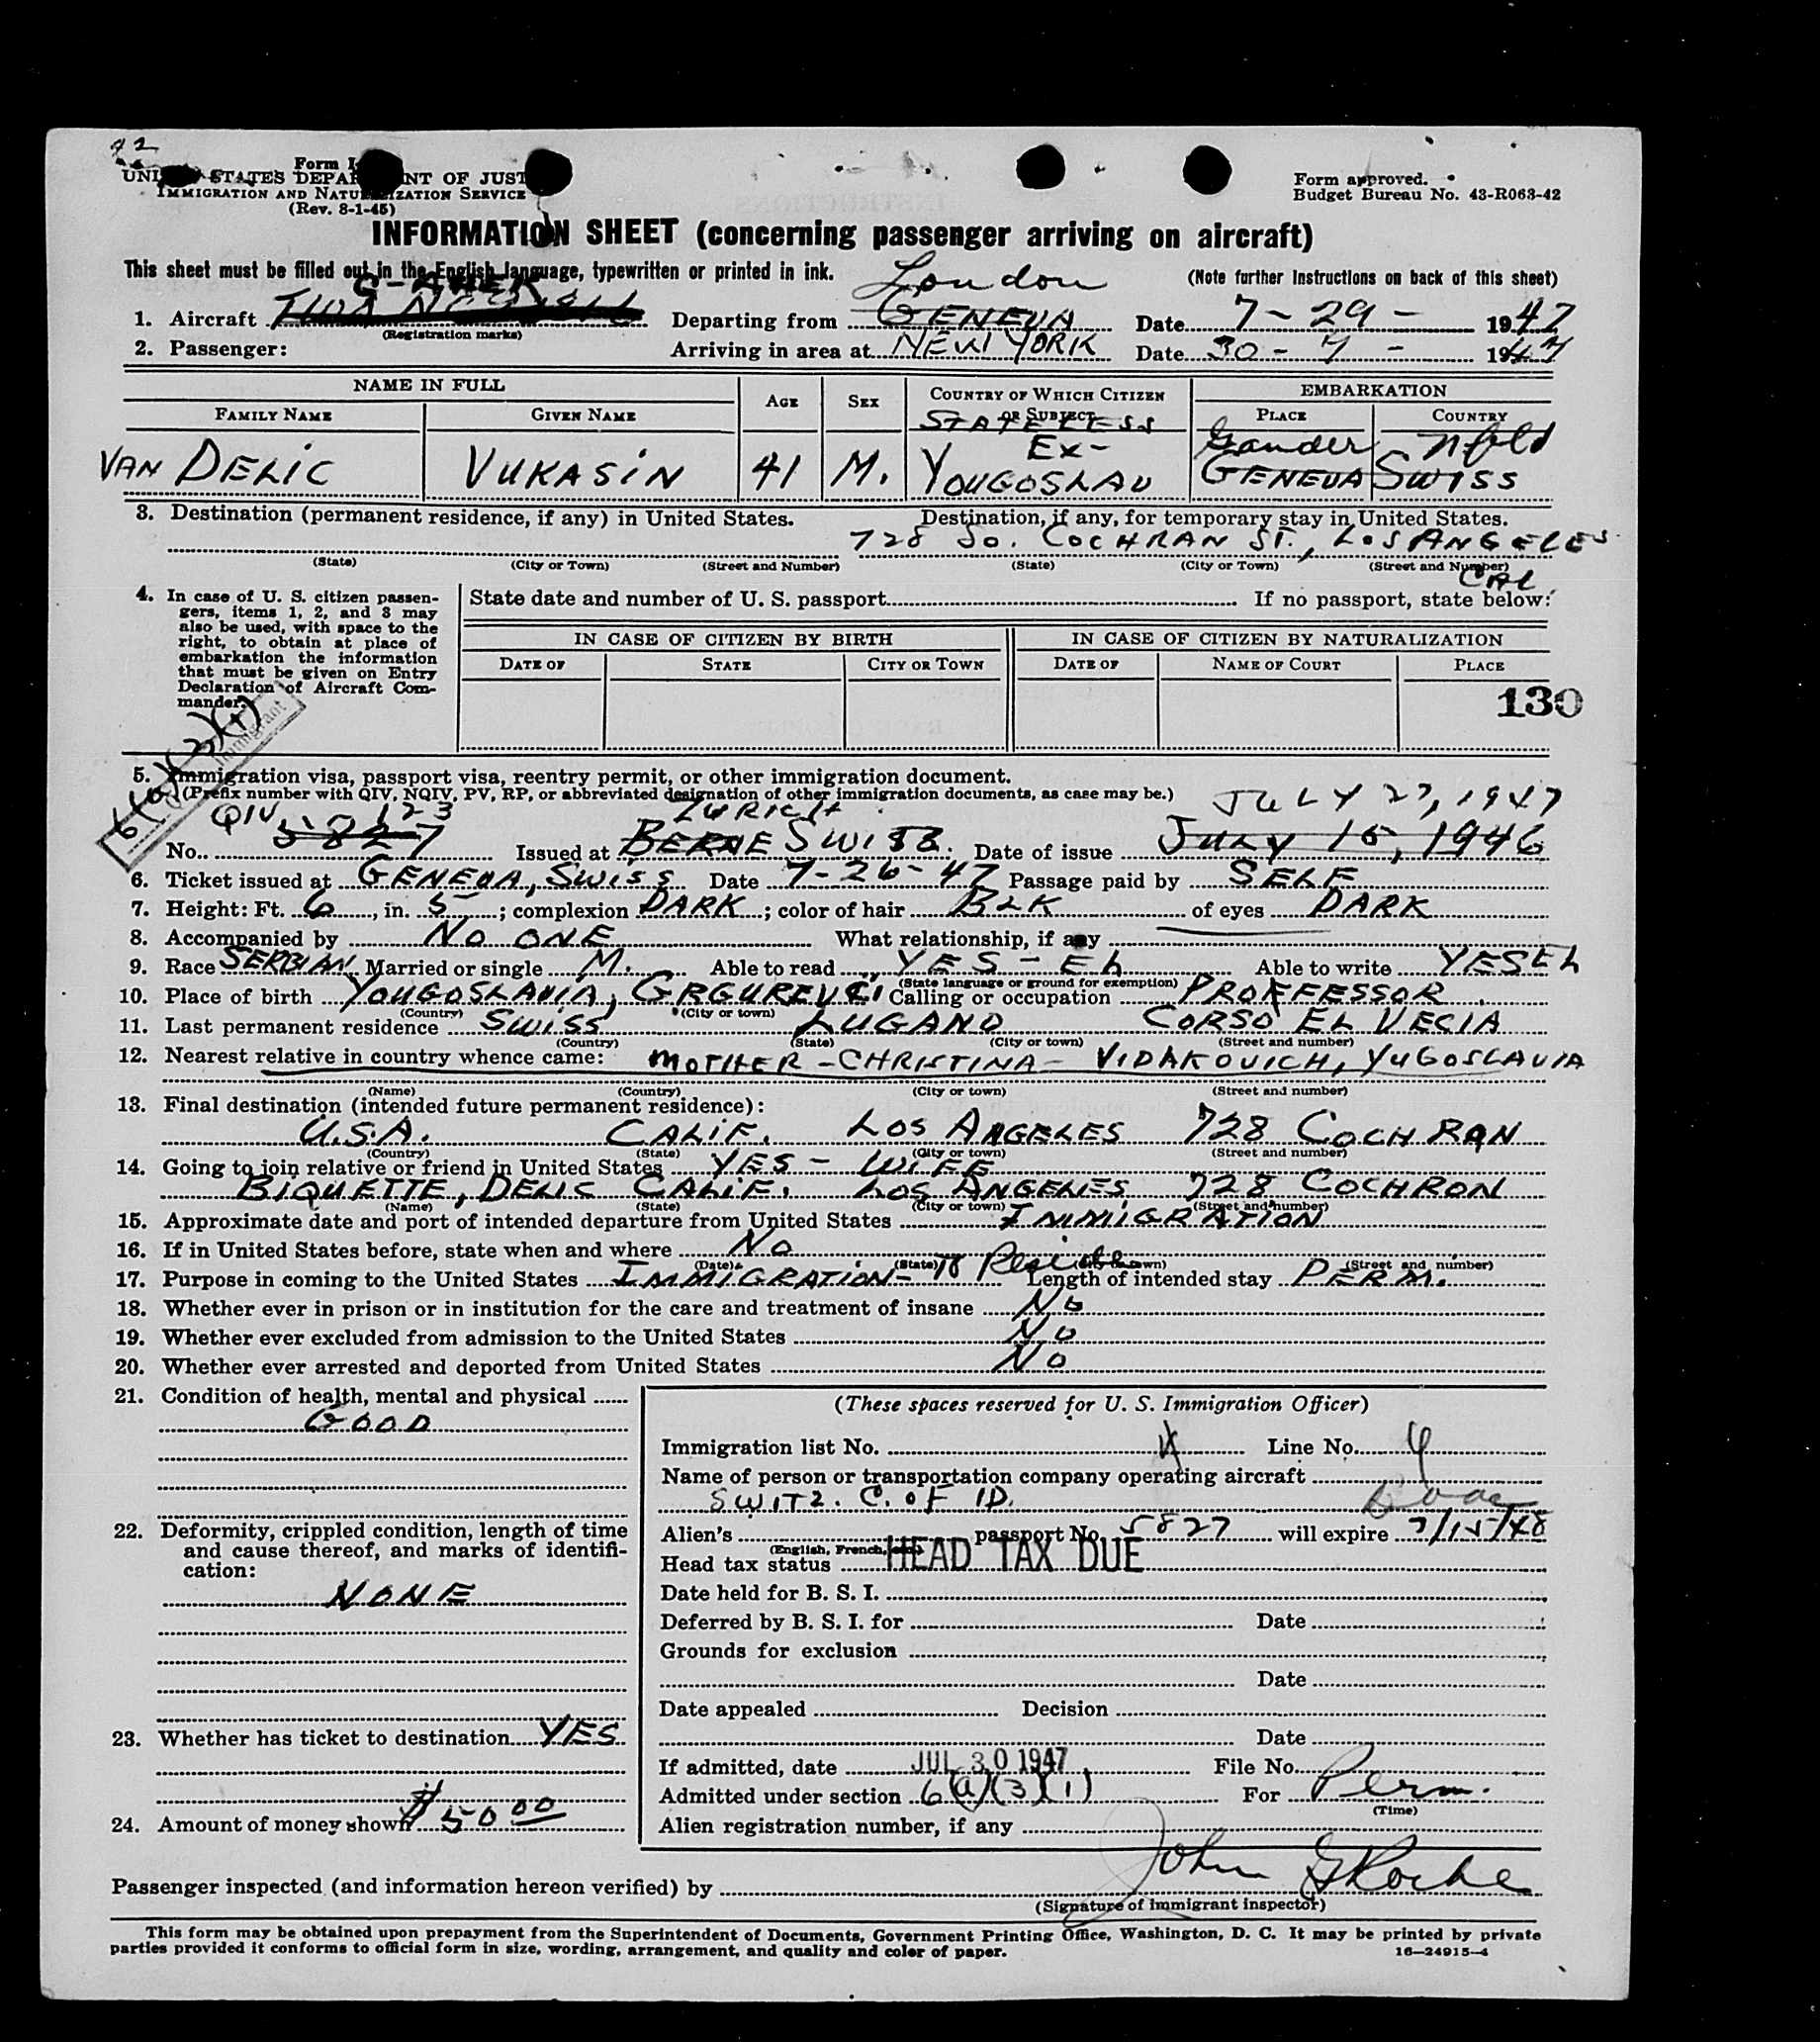 42
Form I-
UNITED STATES DEPARTMENT OF JUST
IMMIGRATION AND NATURALIZATION SERVICE
(Rev. 8-1-45)
Form approved.
Budget Bureau No. 43-R063-42
INFORMATION SHEET (concerning passenger arriving on aircraft)
This sheet must be filled out in the English language, typewritten or printed in ink. (Note further instructions on back of this sheet)
London
1. Aircraft (Registration marks) Departing from GENEVA Date 7-29- 1947
2. Passenger: Arriving in area at NEW YORK Date 30-7- 1947
NAME IN FULL AGE SEX COUNTRY OF WHICH CITIZEN OR SUBJECT EMBARKATION
FAMILY NAME GIVEN NAME PLACE COUNTRY
STATELESS Gander Nfld
VAN DELIC VUKASIN 41 M. EX-YOUGOSLAV GENEVA SWISS
3. Destination (permanent residence, if any) in United States. Destination, if any, for temporary stay in United States.
728 SO. COCHRAN ST., LOS ANGELES
(State) (City or Town) (Street and Number) (State) (City or Town) (Street and Number)
CAL
4. In case of U. S. citizen passen-
gers, items 1, 2, and 3 may
also be used, with space to the
right, to obtain at place of
embarkation the information
that must be given on Entry
Declaration of Aircraft Com-
mander.
State date and number of U. S. passport If no passport, state below:
IN CASE OF CITIZEN BY BIRTH IN CASE OF CITIZEN BY NATURALIZATION
DATE OF STATE CITY OR TOWN DATE OF NAME OF COURT PLACE
130
Immigrant
6(a)(3)(1)
5. Immigration visa, passport visa, reentry permit, or other immigration document.
(Prefix number with QIV, NQIV, PV, RP, or abbreviated designation of other immigration documents, as case may be.)
QIV 123 ZURICH JULY 27, 1947
No. 5827 Issued at BERNE SWISS. Date of issue JULY 15, 1946
6. Ticket issued at GENEVA, SWISS Date 7-26-47 Passage paid by SELF
7. Height: Ft. 6, in. 5; complexion DARK; color of hair BLK of eyes DARK
8. Accompanied by NO ONE What relationship, if any
9. Race SERBIAN Married or single M. Able to read YES - Eh Able to write YES Eh
(State language or ground for exemption)
10. Place of birth YOUGOSLAVIA, GRGUREVCI Calling or occupation PROFFESSOR
(Country) (City or town)
11. Last permanent residence SWISS LUGANO CORSO EL VECIA
(Country) (State) (City or town) (Street and number)
12. Nearest relative in country whence came: MOTHER - CHRISTINA - VIDAKOVICH, YUGOSLAVIA
(Name) (Country) (City or town) (Street and number)
13. Final destination (intended future permanent residence):
U.S.A. CALIF. LOS ANGELES 728 COCHRAN
(Country) (State) (City or town) (Street and number)
14. Going to join relative or friend in United States YES - WIFE
BIQUETTE, DELIC CALIF. LOS ANGELES 728 COCHRON
(Name) (State) (City or town) (Street and number)
15. Approximate date and port of intended departure from United States IMMIGRATION
16. If in United States before, state when and where NO
(Date) (State) (City or town) (Street and number)
17. Purpose in coming to the United States IMMIGRATION - To Reside Length of intended stay PERM.
18. Whether ever in prison or in institution for the care and treatment of insane No
19. Whether ever excluded from admission to the United States No
20. Whether ever arrested and deported from United States No
21. Condition of health, mental and physical
GOOD
22. Deformity, crippled condition, length of time
and cause thereof, and marks of identifi-
cation:
NONE
23. Whether has ticket to destination YES
24. Amount of money shown $50 00
(These spaces reserved for U. S. Immigration Officer)
Immigration list No. 4 Line No. 4
Name of person or transportation company operating aircraft
SWITZ. C. OF ID.
Alien's passport No. 5827 will expire 7/15/48
(English, French, etc.)
Head tax status HEAD TAX DUE
Date held for B. S. I.
Deferred by B. S. I. for Date
Grounds for exclusion
Date
Date appealed Decision
Date
If admitted, date JUL 30 1947 File No.
Admitted under section 6(a)(3)(1) For Perm.
(Time)
Alien registration number, if any
Passenger inspected (and information hereon verified) by John G Roche
(Signature of immigrant inspector)
This form may be obtained upon prepayment from the Superintendent of Documents, Government Printing Office, Washington, D. C. It may be printed by private
parties provided it conforms to official form in size, wording, arrangement, and quality and color of paper. 16—24915-4